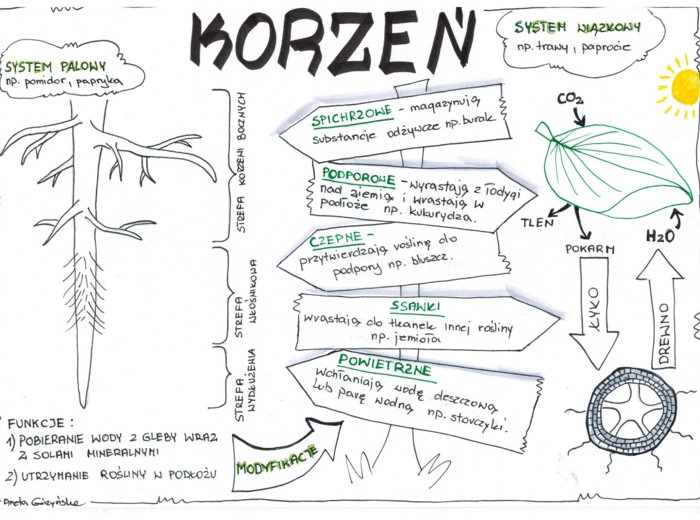 KORZEŃ
SYSTEM PALOWY
np. pomidor, papryka
SYSTEM WIĄZKOWY
np. trawy, paprocie
STREFA KORZENI BOCZNYCH
STREFA
WŁOŚNIKOWA
STREFA
WYDŁUŻENIA
SPICHRZOWE - magazynują
substancje odżywcze np. burak
PODPOROWE - wyrastają z łodygi
nad ziemią i wrastają w
podłoże np. kukurydza.
CZEPNE -
przytwierdzają roślinę do
podpory np. bluszcz.
SSAWKI
wrastają do tkanek innej rośliny
np. jemioła
POWIETRZNE
wchłaniają wodę deszczową
lub parę wodną np. storczyki.
CO2
TLEN
POKARM
H2O
ŁYKO
DREWNO
FUNKCJE:
1) POBIERANIE WODY Z GLEBY WRAZ
Z SOLAMI MINERALNYMI
2) UTRZYMANIE ROŚLINY W PODŁOŻU
MODYFIKACJE
Aneta